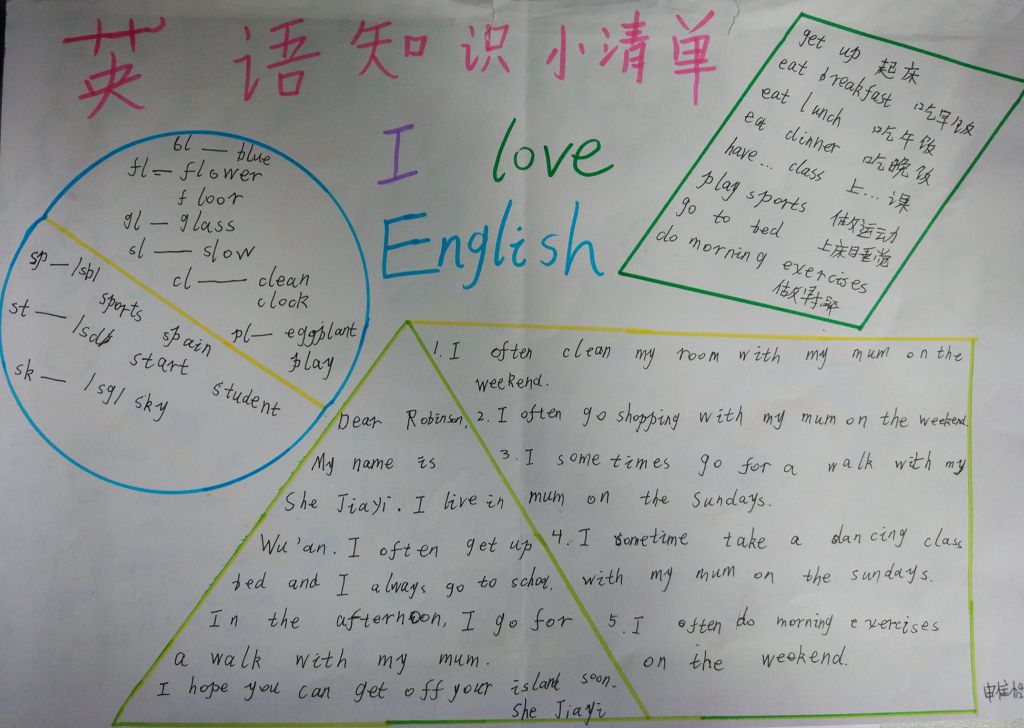 英语知识小清单
I love
English
bl — blue
fl — flower
floor
gl — glass
sl — slow
cl — clean
clook
pl — eggplant
play
sp — /sb/
sports
spain
st — /sd/
start
student
sk — /sg/ sky
get up 起床
eat breakfast 吃早饭
eat lunch 吃午饭
eat dinner 吃晚饭
have... class 上...课
play sports 做运动
go to bed 上床睡觉
do morning exercises
Dear Robinson,
My name is
She JiaYi. I live in
Wu'an. I often get up
bed and I always go to
In the afternoon, I go for
a walk with my mum.
I hope you can get off your island soon.
She Jiayi
1. I often clean my room with my mum on the
weekend.
2. I often go shopping with my mum on the weekend.
3. I sometimes go for a walk with my
mum on the Sundays.
4. I sometime take a dancing class
with my mum on the sundays.
5. I often do morning exercises
on the weekend.